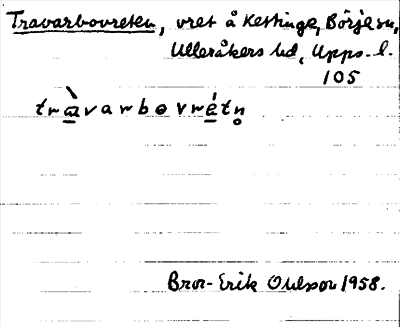 Travarbovreten, vret å Kettinge, Börje sn,
Ulleråkers hd, Upps. l.
105
tràvarbovrétn̥
Bror-Erik Ohlsson 1958.